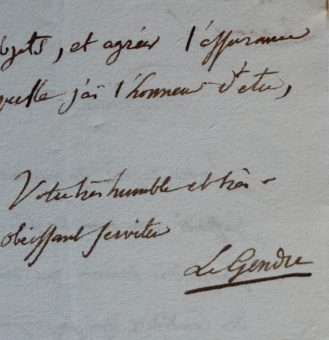 bjets, et agréer l'assurance
quelle j'ai l'honneur d'etre,
Votre très humble et très-
obéissant serviteur
Le Gendre